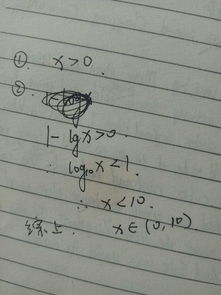 ①. x>0
②.
1-lgx>0
∴ log₁₀x<1.
∴ x<10.
综上. x∈(0,10)